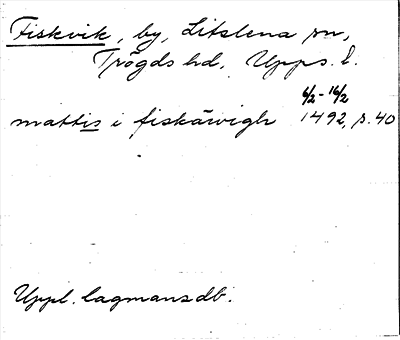 Fiskvik, by, Litslena sn,
Trögds hd, Upps. l.
6/2-16/2
mattis i fiskäwigh 1492, s. 40
Uppl. lagmansdb.